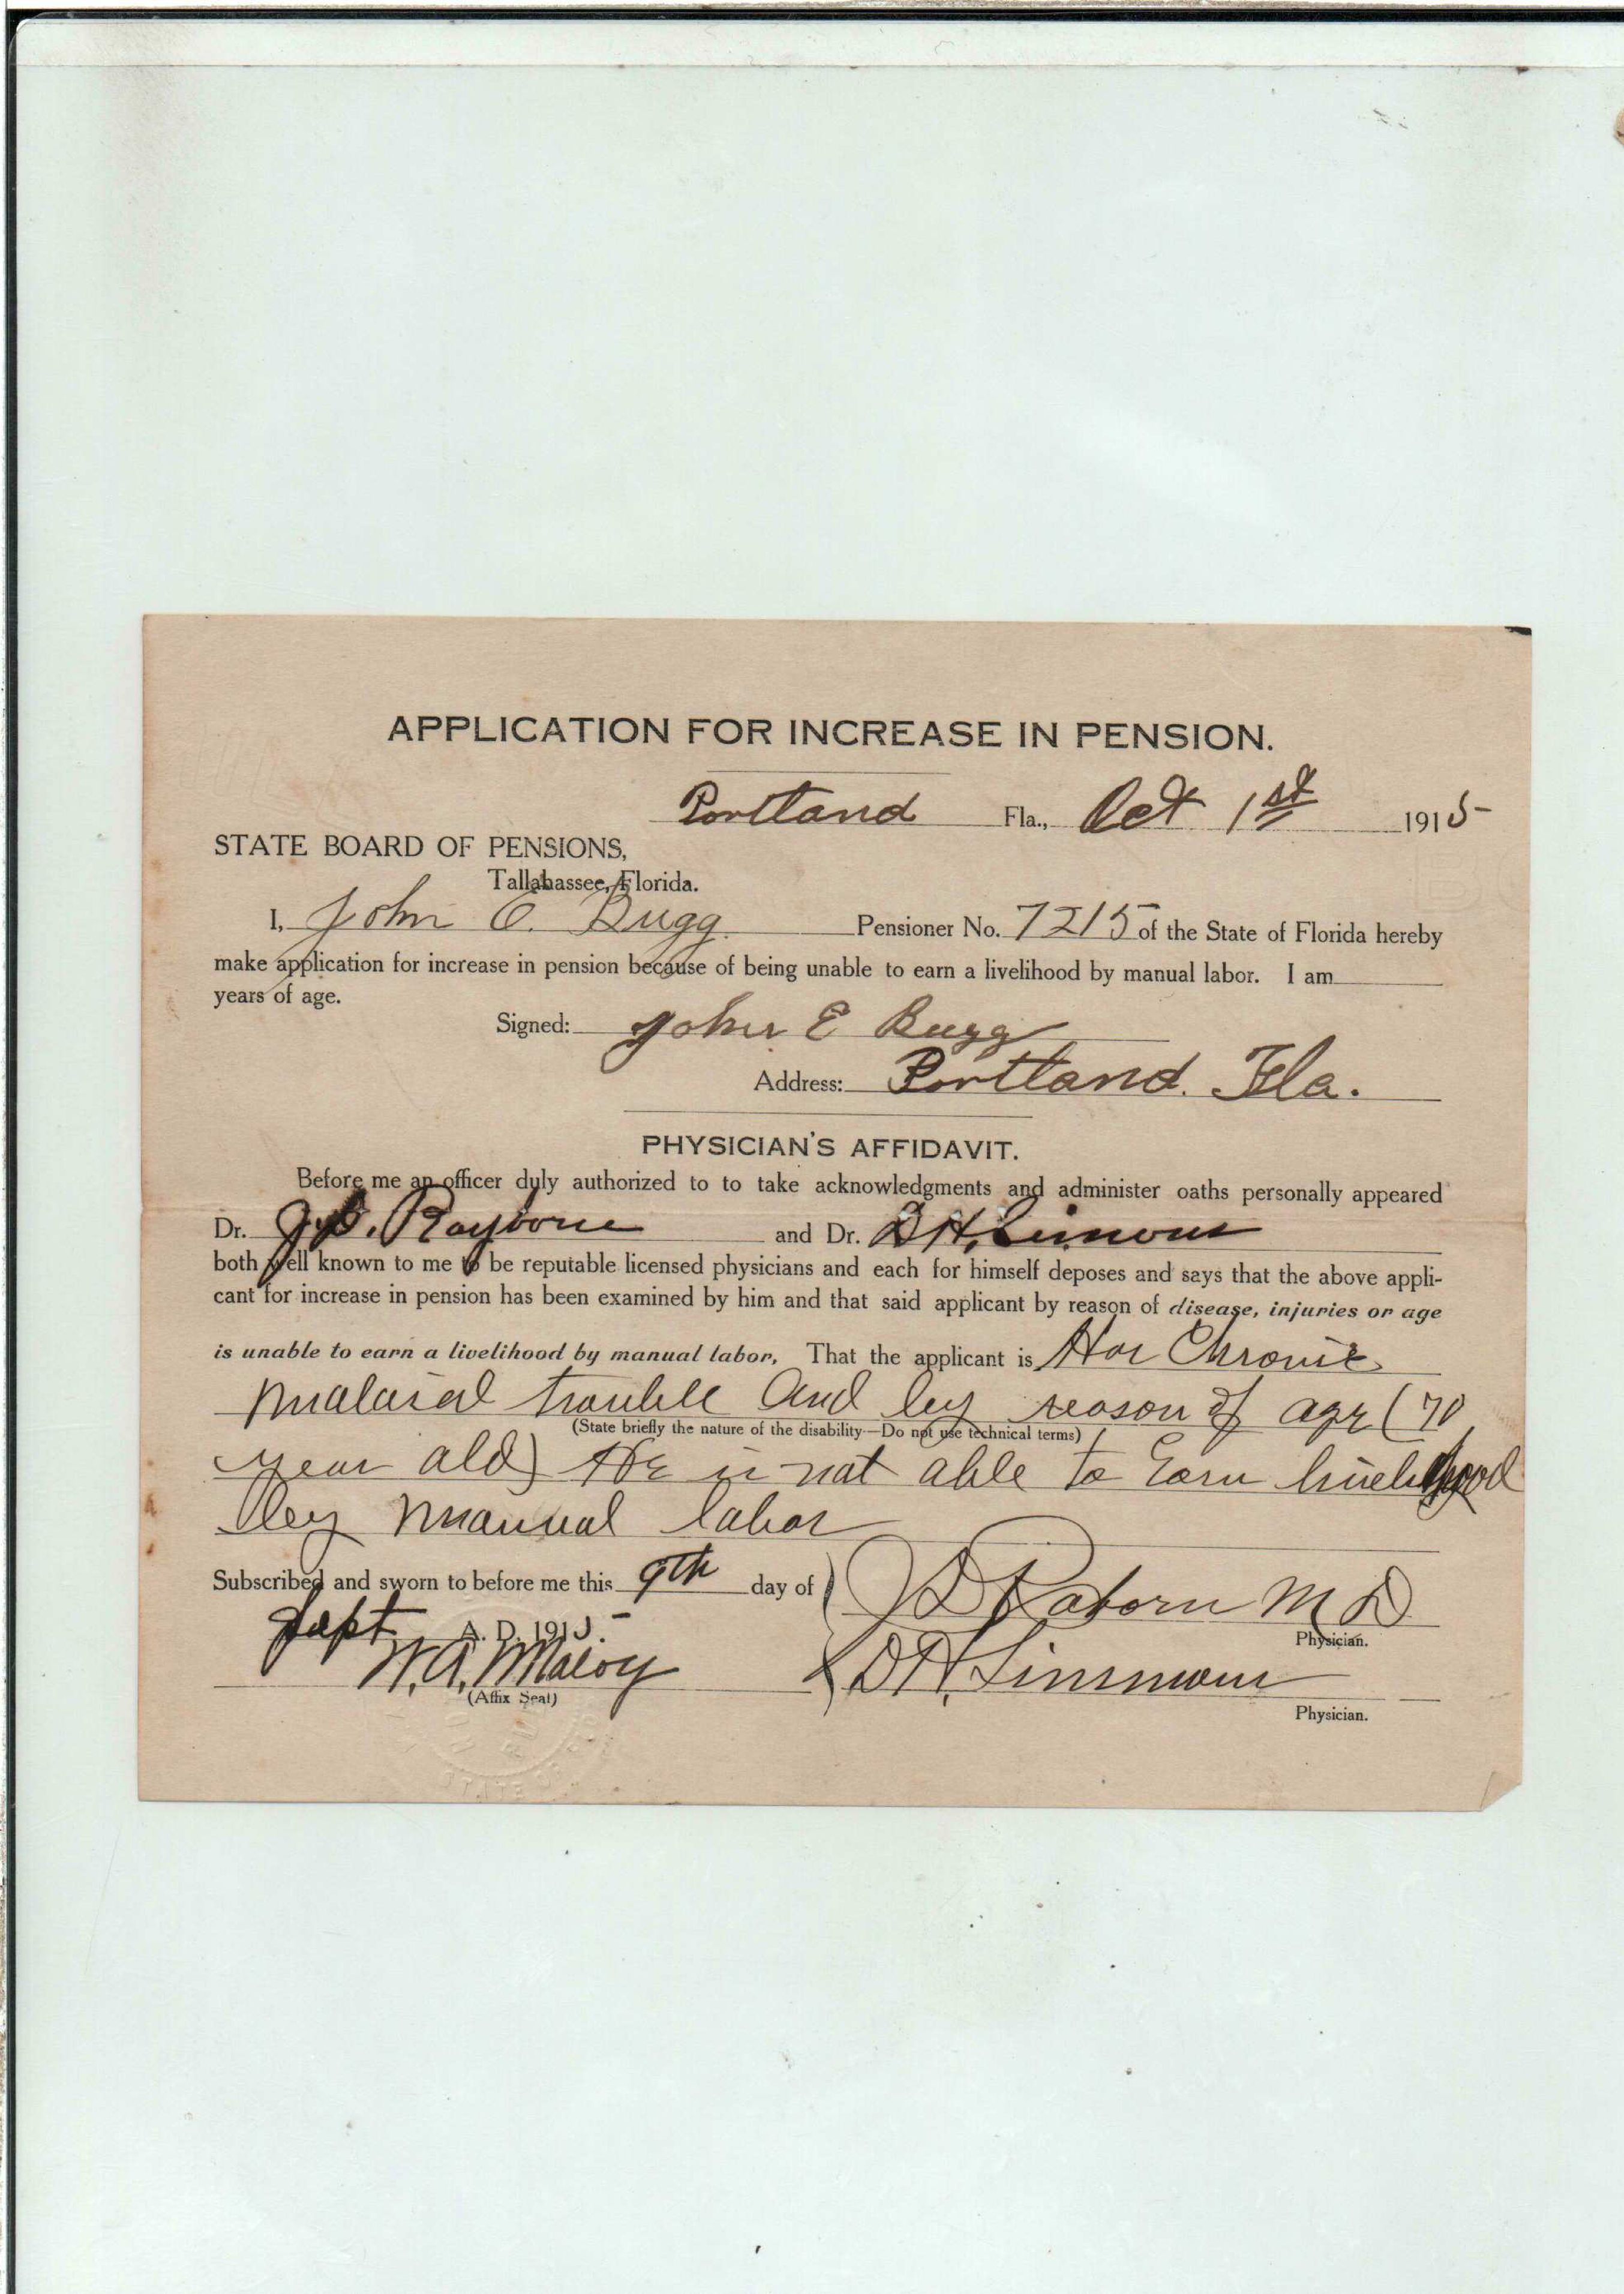 APPLICATION FOR INCREASE IN PENSION.
Portland Fla., Oct 1st 1915
STATE BOARD OF PENSIONS,
Tallahassee, Florida.
I, John E. Bugg Pensioner No. 7215 of the State of Florida hereby
make application for increase in pension because of being unable to earn a livelihood by manual labor. I am
years of age.
Signed: John E Bugg
Address: Portland. Fla.
PHYSICIAN'S AFFIDAVIT.
Before me an officer duly authorized to to take acknowledgments and administer oaths personally appeared
Dr. J.D. Rayborne and Dr. D.H. Simons
both well known to me to be reputable licensed physicians and each for himself deposes and says that the above appli-
cant for increase in pension has been examined by him and that said applicant by reason of disease, injuries or age
is unable to earn a livelihood by manual labor, That the applicant is Has Chronic
malarial trouble and by reason of age (70
(State briefly the nature of the disability—Do not use technical terms)
year old) He is not able to Earn livelihood
by manual labor
Subscribed and sworn to before me this 9th day of
JD Raborn M D
Sept A. D. 1915
Physician.
W.A. Maloy
D.H. Simmons
(Affix Seal)
Physician.